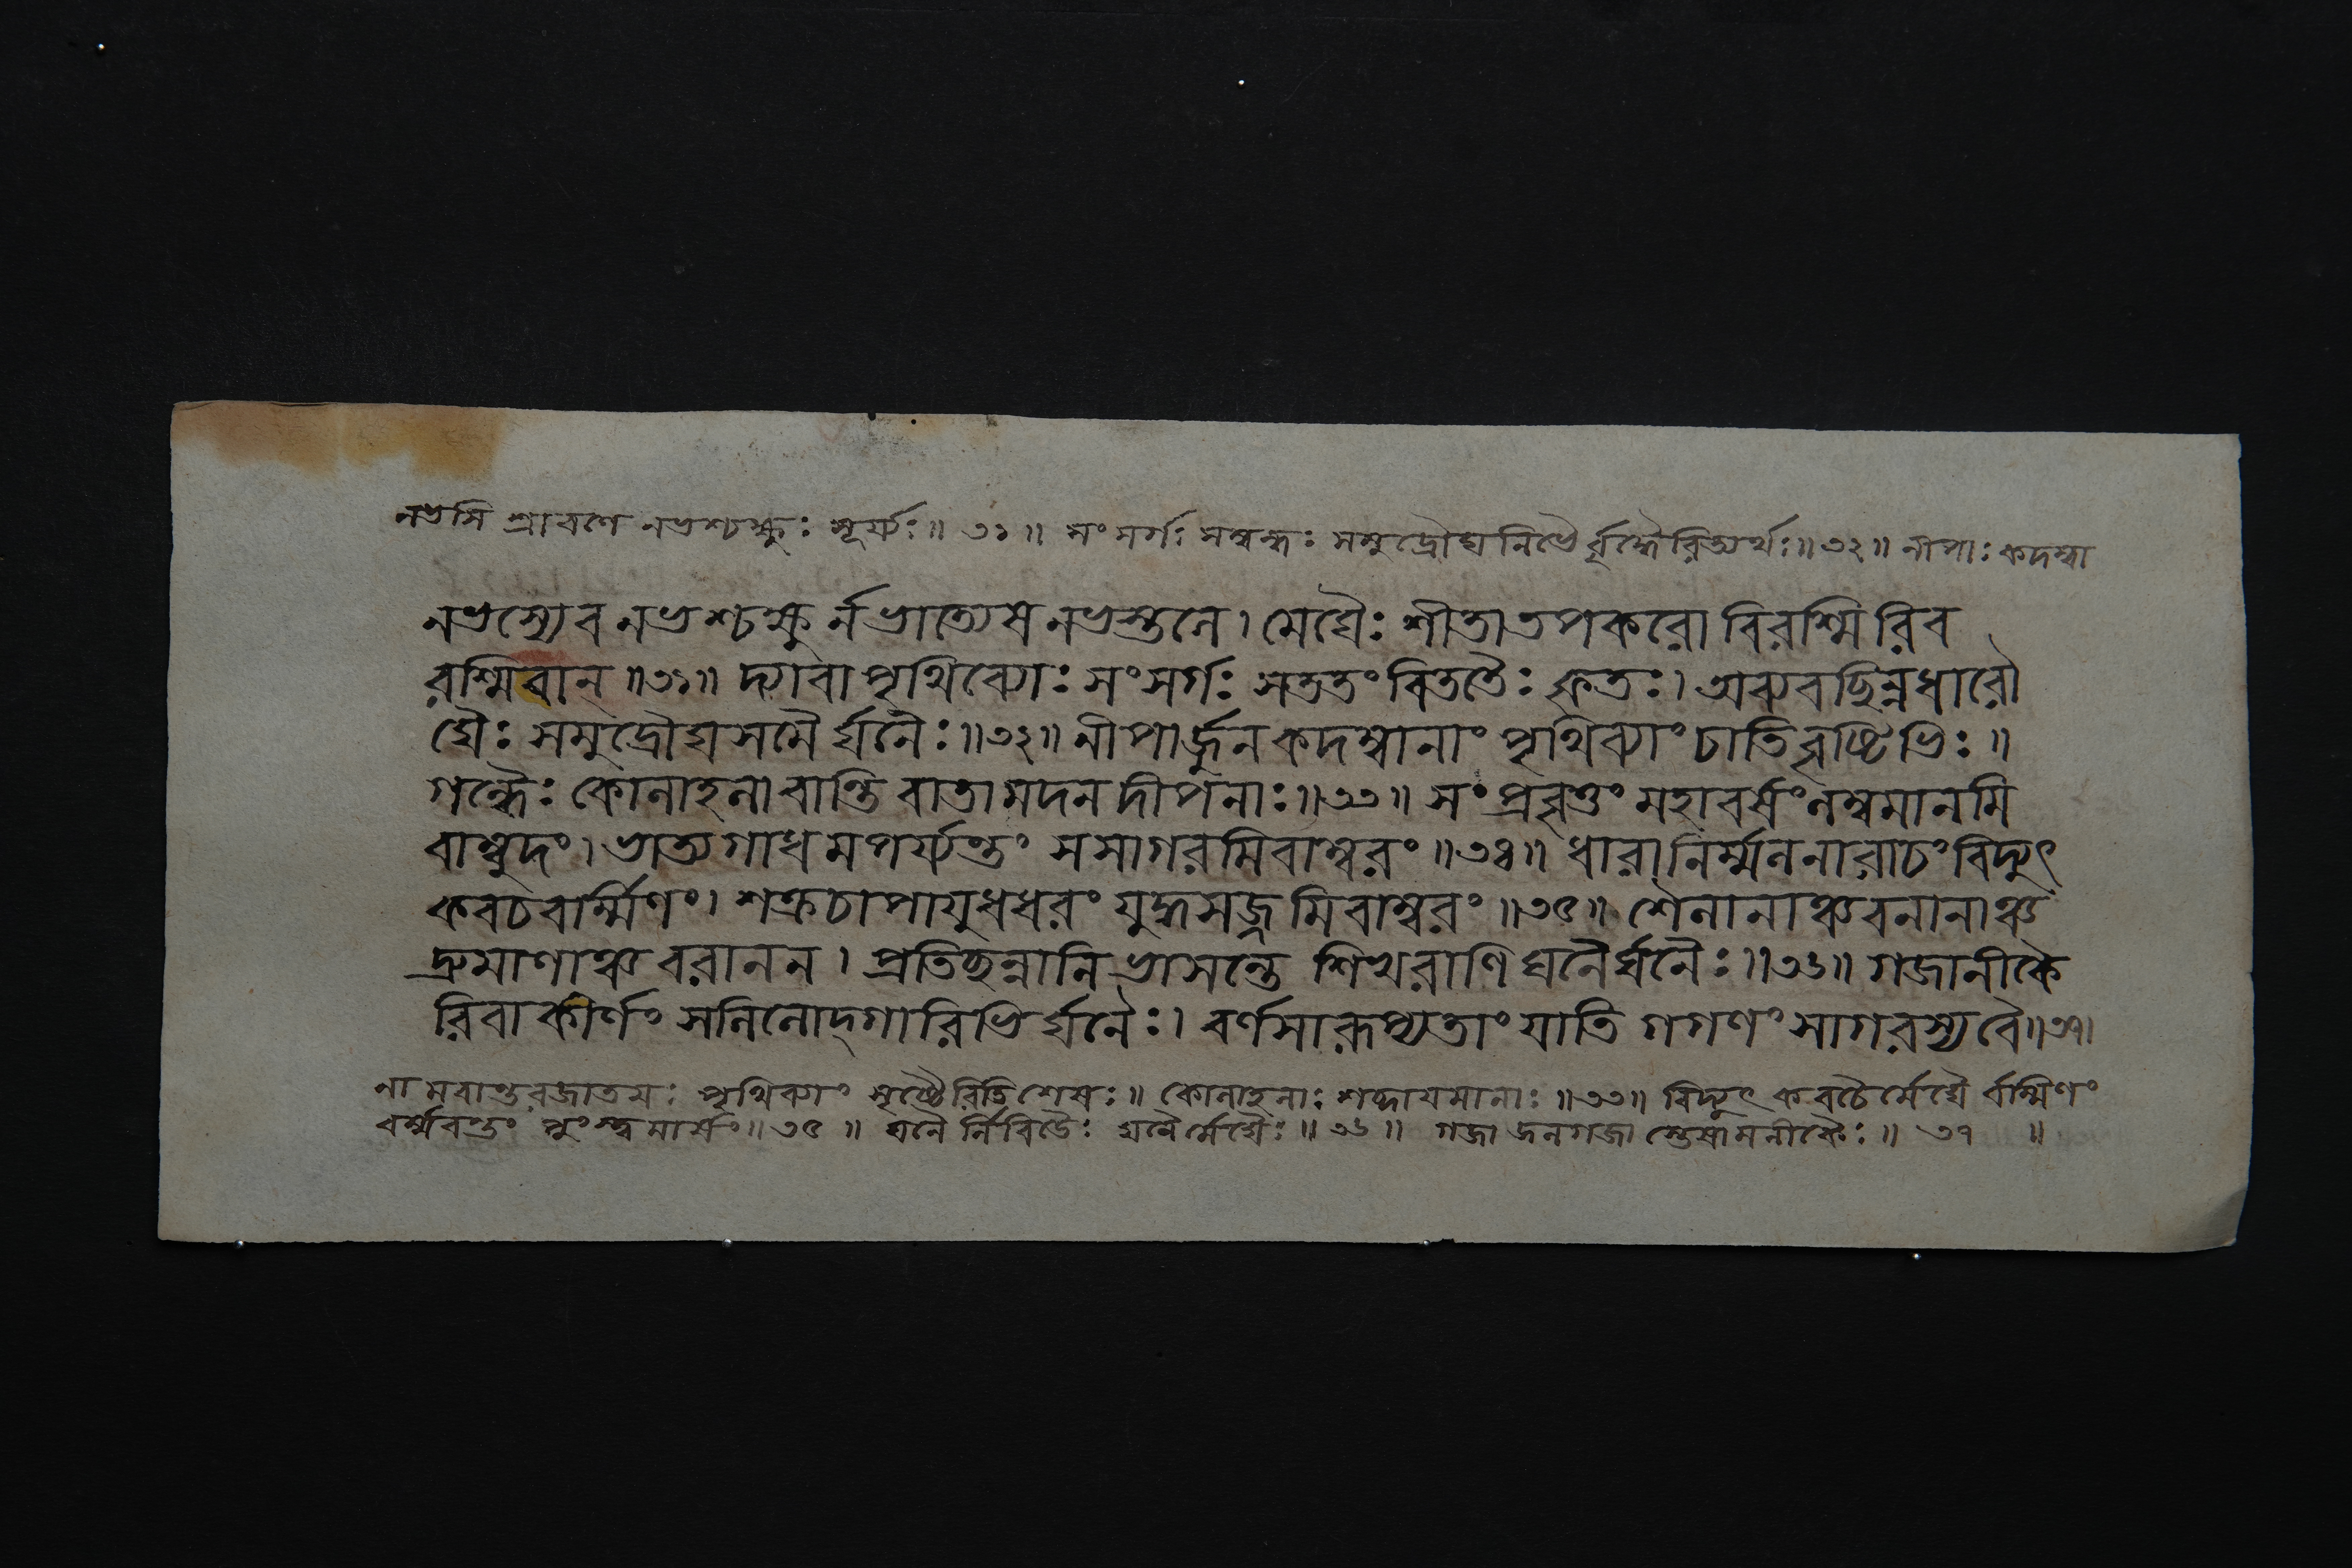 নভসি শ্রাবণে নভশ্চক্ষুঃ সূর্য্যঃ॥ ৩১ ॥ সংসর্গঃ সম্বন্ধঃ সমুদ্রৌঘনিভৈর্বৃদ্ধৈরিত্যর্থঃ॥ ৩২ ॥ নীপাঃ কদম্বা
নভস্যেব নভশ্চক্ষুর্নভাত্যেষ নভস্তলে। মেঘৈঃ শীতাতপকরো বিরশ্মিরিব
রশ্মিবান্ ॥৩১॥ দ্যাবাপৃথিব্যোঃ সংসর্গঃ সততং বিততৈঃ কৃতঃ। অব্যবছিন্নধারৌ
ঘৈঃ সমুদ্রৌঘসমৈর্ঘনৈঃ॥৩২॥ নীপার্জ্জুনকদম্বানাং পৃথিব্যাং চাতিবৃষ্টিভিঃ॥
গন্ধৈঃ কোলাহলা বান্তি বাতা মদনদীপনাঃ॥৩৩॥ সংপ্রবৃত্তং মহাবর্ষং লম্বমানমি
বাম্বুদং। ভাত্যগাধমপর্য্যন্তং সসাগরমিবাম্বরং ॥৩৪॥ ধারানির্ম্মলনারাচং বিদ্যুৎ
কবচবার্ম্মিণং। শক্রচাপায়ুধধরং যুদ্ধসজ্জমিবাম্বরং ॥৩৫॥ শৈলানাঞ্চ বনানাঞ্চ
দ্রুমাণাঞ্চ বরানন। প্রতিছন্নানি ভাসন্তে শিখরাণি ঘনৈর্ঘনৈঃ॥৩৬॥ গজানীকৈ
রিবাকীর্ণং সলিলোদ্গারিভির্ঘনৈঃ। বর্ণসারূপ্যতাং যাতি গগণং সাগরস্য বৈ॥৩৭।
নামবান্তরজাতয়ঃ পৃথিব্যাং সৃষ্টৈরিতি শেষঃ॥ কোলাহলাঃ শব্দায়মানাঃ ॥৩৩॥ বিদ্যুৎকবচৈর্মেঘৈর্বার্ম্মিণং
বর্ম্মবন্তং পুংস্ত্বমার্ষং॥ ৩৫ ॥ ঘনৈর্নিবিডৈঃ ঘনৈর্মেঘৈঃ॥ ৩৬॥ গজা জলগজাস্তেষামনীকৈঃ॥ ৩৭ ॥